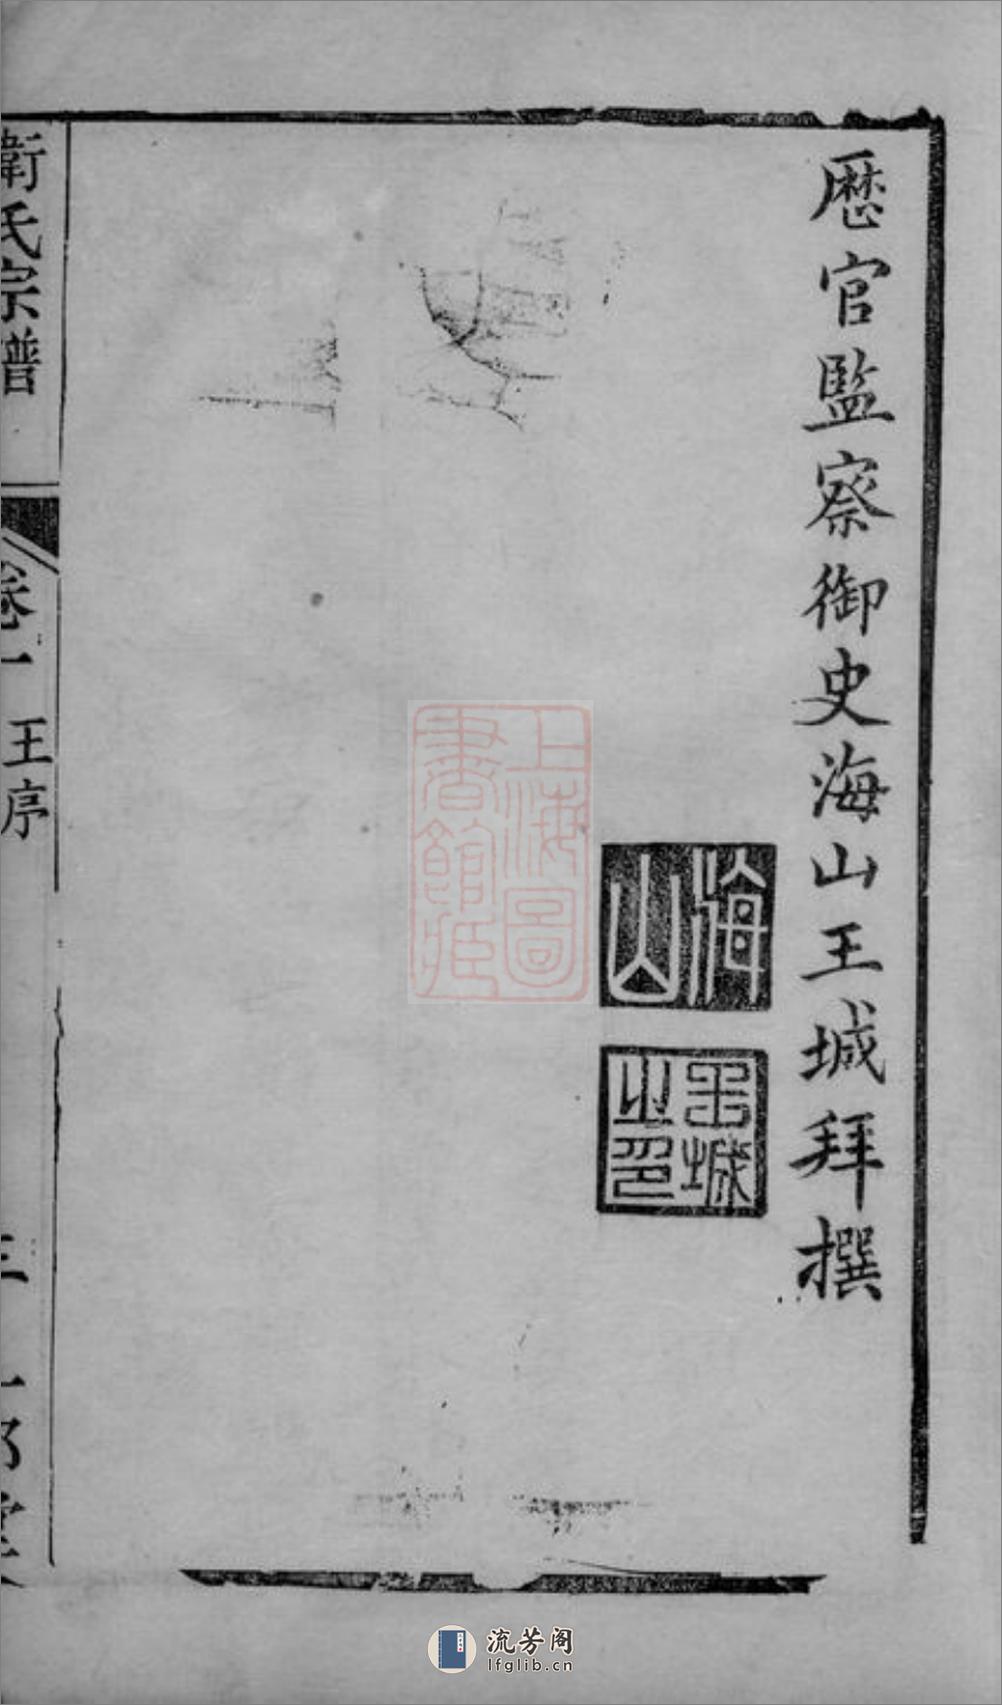 歷官監察御史海山王城拜撰
海山
王城之印
上海圖書館藏
衛氏宗譜
卷一
王序
流芳阁
lfglib.cn